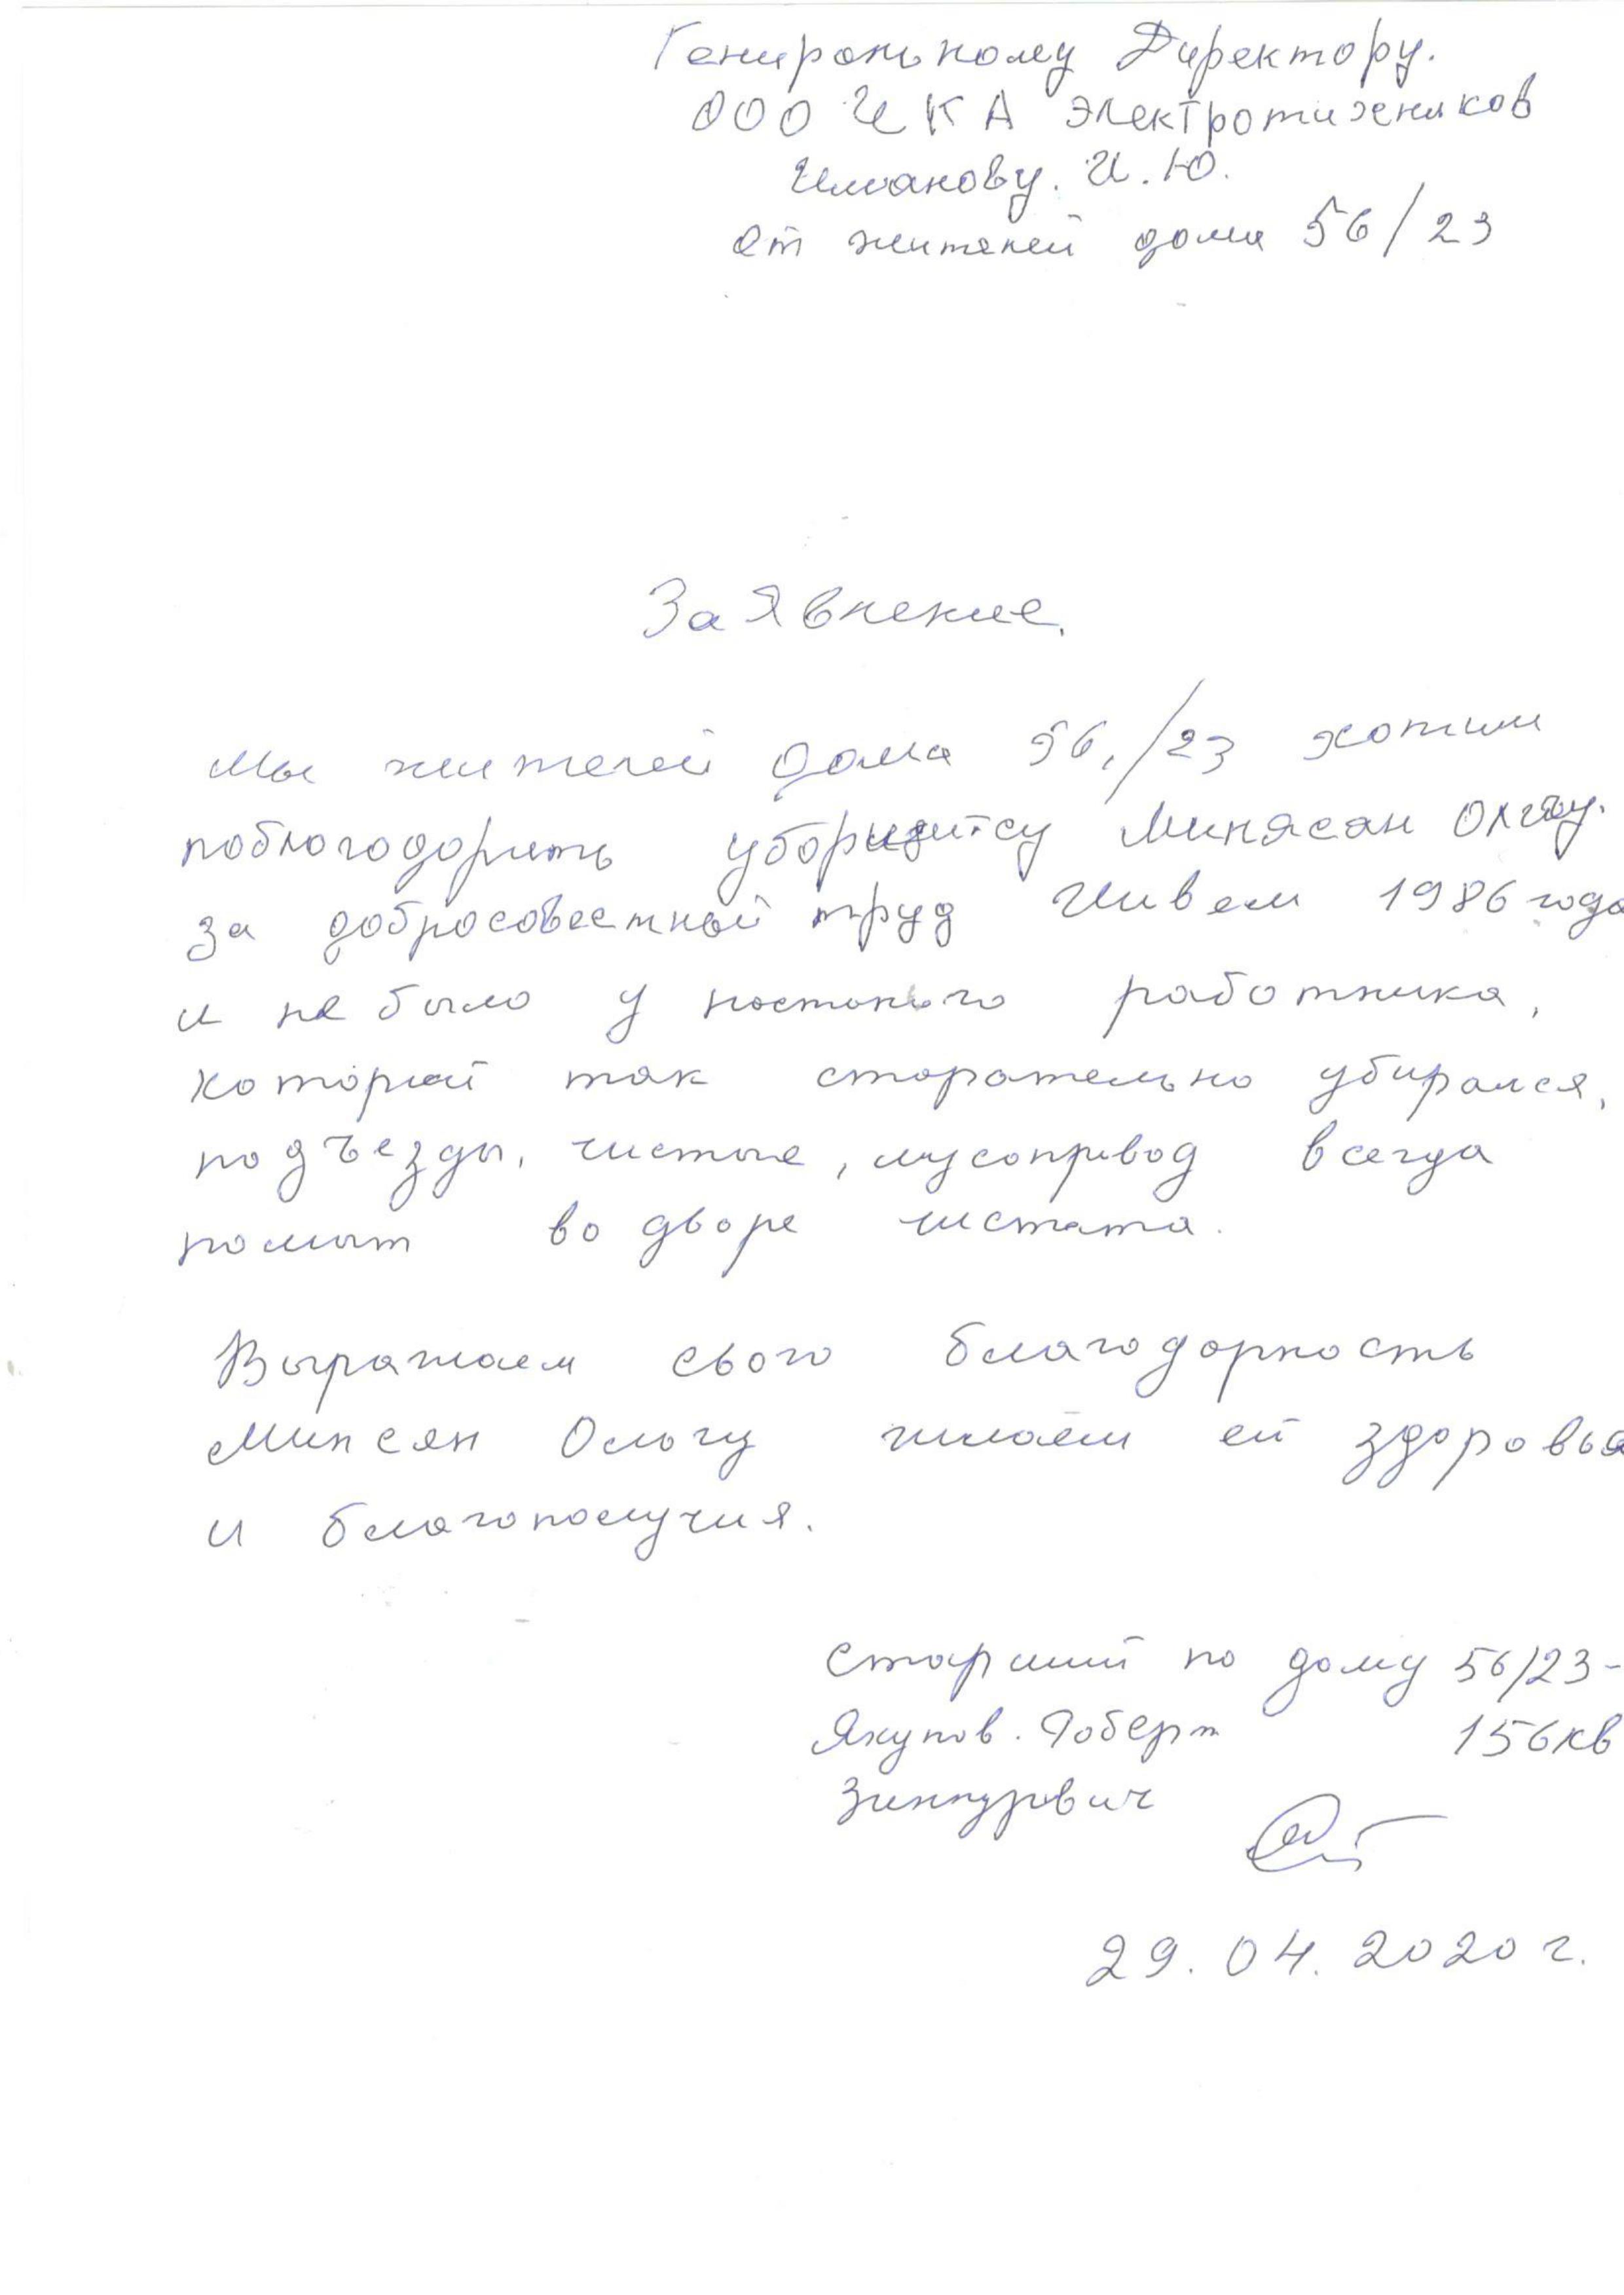 Гениральному Директору.
ООО ЖКА Электротихников
Иманову. И.Ю.
От жителей дома 56/23
Заявление.
Мы жителей дома 56,/23 хотим
поблогодорить уборщитсу Минясан Олгу.
за добросовестной труд Живем 1986 года
и не было у постоного работника,
который так старательно убирался,
подъезды, чистые, мусопревод всегда
помыт во дворе чистата.
Выражаем свою благодорность
Минсян Ольгу желаем ей здоровья
и благополучия.
Старший по дому 56/23-
Якупов. Роберт 156кв
Зиннурович
29.04.2020 г.